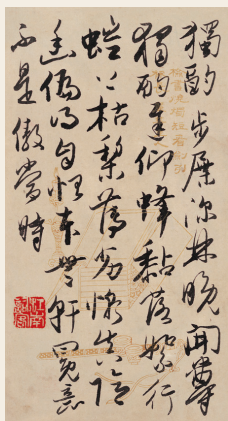 獨酌 步屧深林晚開尊
獨酌遲仰蜂黏落絮行
蟻上枯棃薄劣慚真隱
幽偏得自怡本無軒冕意
不是傲當時